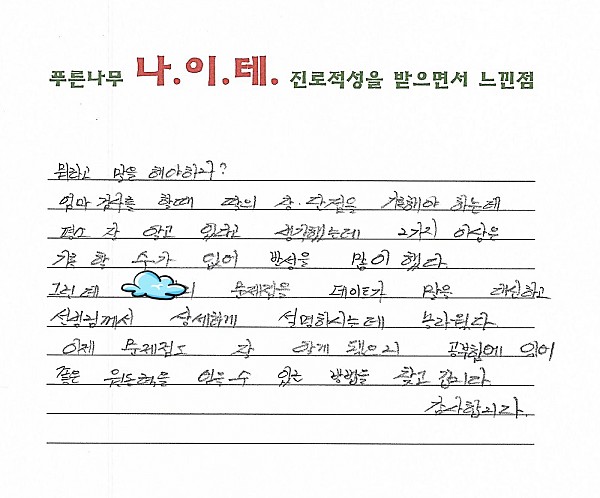 푸른나무 나.이.테. 진로적성을 받으면서 느낀점
뭐라고 말을 해야하지?
엄마 검사를 할때 딸의 장.단점을 기록해야 하는데
평소 잘 알고 있다고 생각했는데 2가지 이상은
기록 할 수가 없어 반성을 많이 했다.
그런데 문제점을 데이터가 말을 대신하고
선생님께서 상세하게 설명하시는데 놀라웠다.
이제 문제점도 잘 알게 됐으니 공부함에 있어
좋은 찾고 갑니다.
감사합니다.